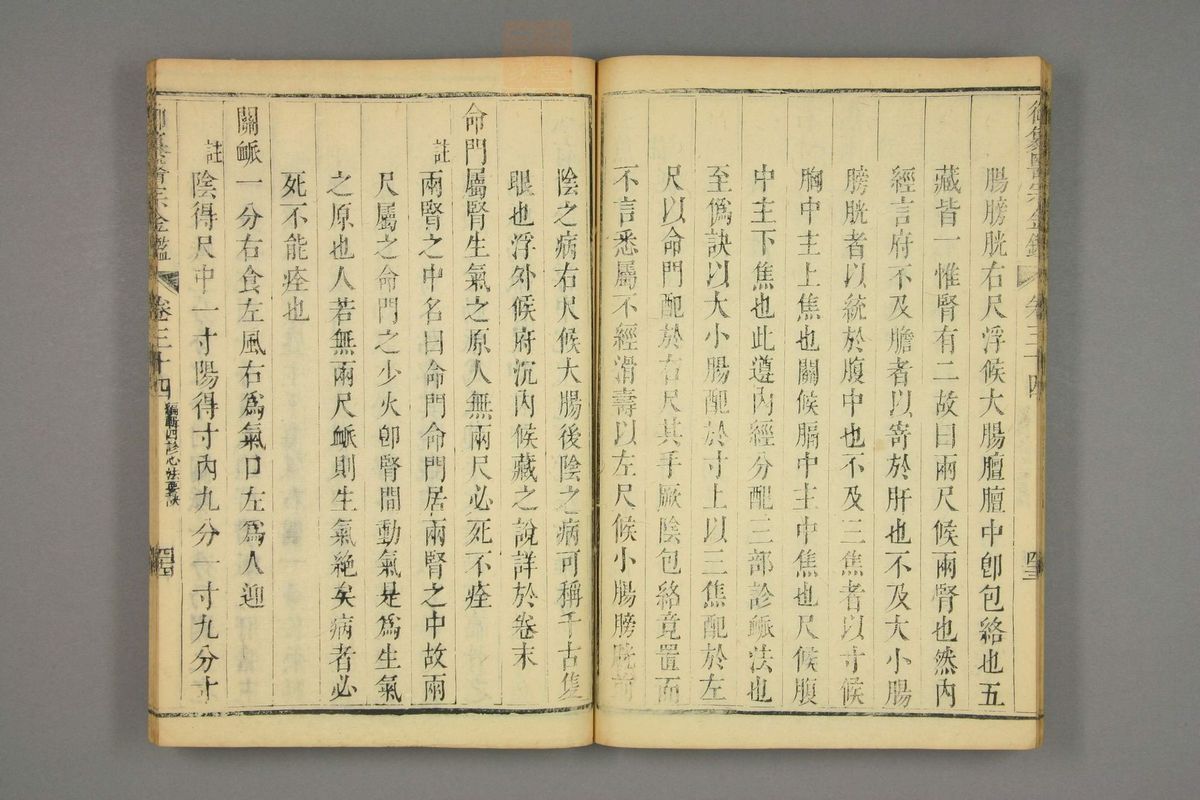 御纂醫宗金鑑 卷三十四
腸膀胱右尺浮候大腸膻膻中卽包絡也五
藏皆一惟腎有二故曰兩尺候兩腎也然內
經言府不及膽者以寄於肝也不及大小腸
膀胱者以統於腹中也不及三焦者以寸候
胸中主上焦也關候膈中主中焦也尺候腹
中主下焦也此遵內經分配三部診䘑法也
至僞訣以大小腸配於寸上以三焦配於左
尺以命門配於右尺其手厥陰包絡竟置而
不言悉屬不經滑壽以左尺候小腸膀胱前
陰之病右尺候大腸後陰之病可稱千古隻
眼也浮外候府沉內候藏之說詳於卷末
命門屬腎生氣之原人無兩尺必死不痊
註 兩腎之中名曰命門命門居兩腎之中故兩
尺屬之命門之少火卽腎間動氣是爲生氣
之原也人若無兩尺䘑則生氣絶矣病者必
死不能痊也
關䘑一分右食左風右爲氣口左爲人迎
註 陰得尺中一寸陽得寸內九分一寸九分寸
御纂醫宗金鑑 卷三十四 編輯四診心法要訣